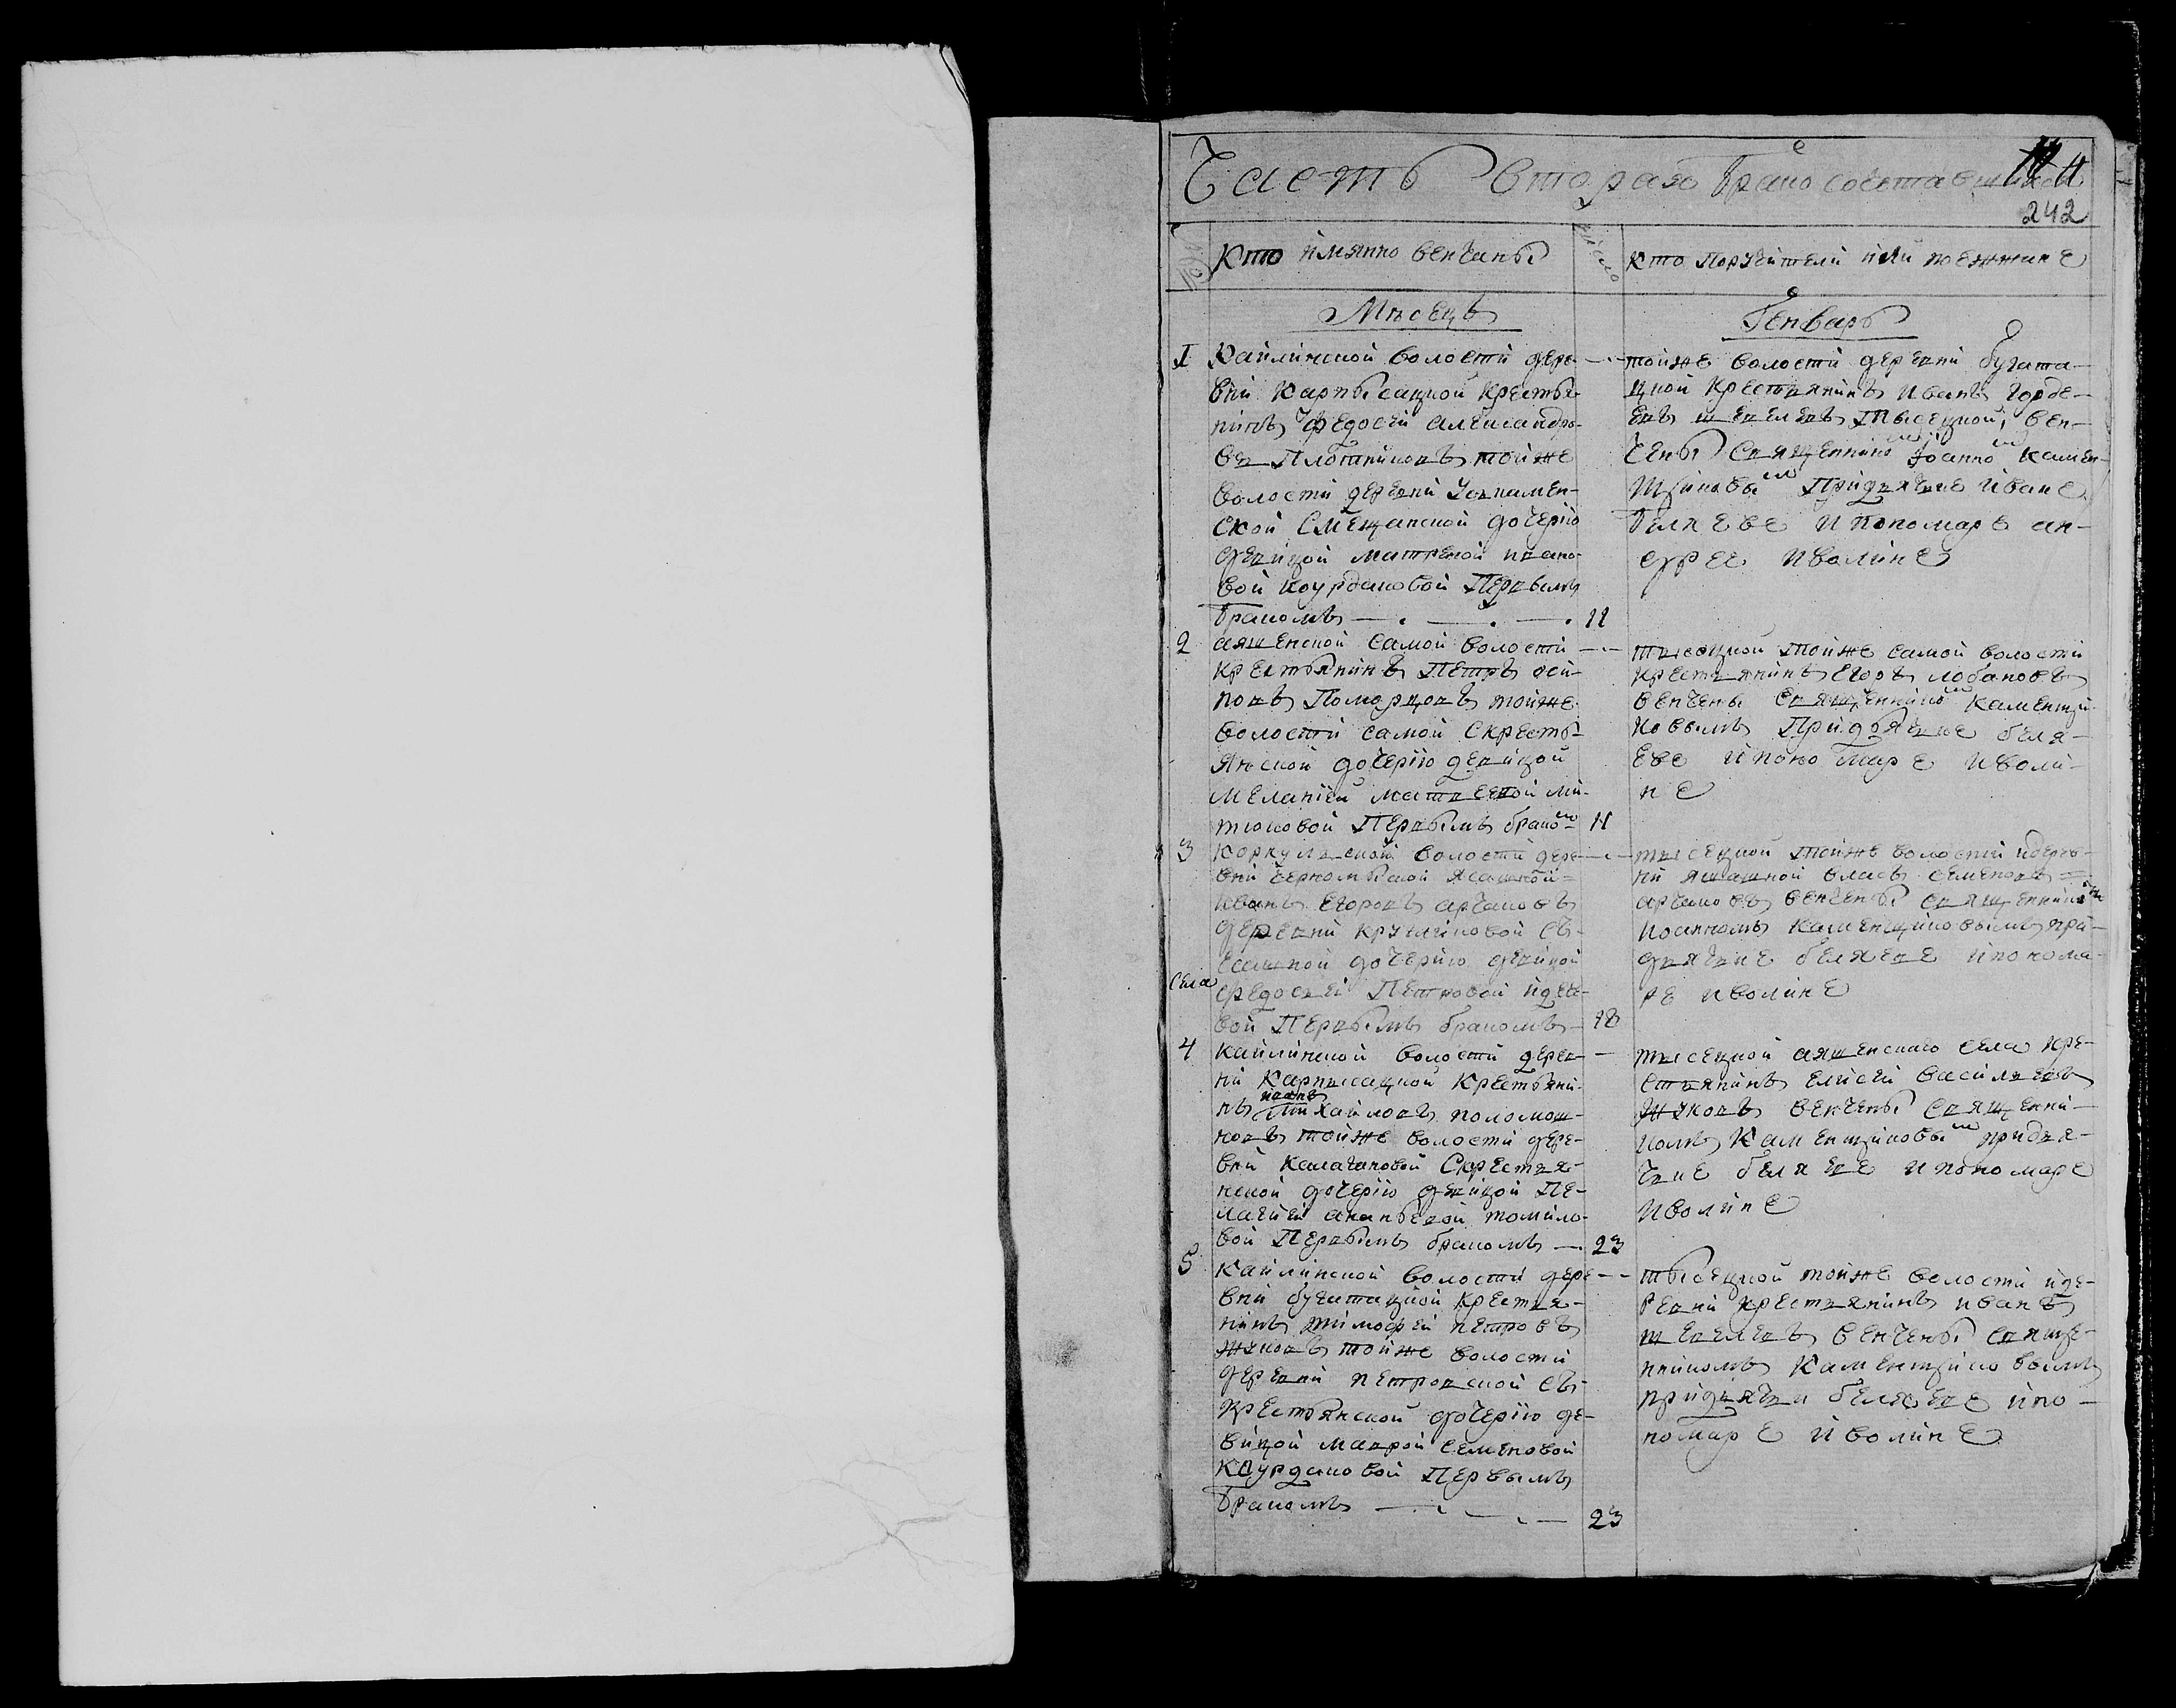 Часть вторая бракосочетавшихся
11
242
Кто имянно венчаны
число
кто поручители или поежжане
Мѣсецъ
Генварь
1
Кайлинской волости дере-
вни Карпысацкой крестья-
нинъ Федосей александро-
въ Плотниковъ тойже
волости деревни
ской Смещанской дочерью
девицой матреной ивано-
вой коурдаковой Первымъ
бракомъ 11
тойже волости деревни бугота-
цкой крестьянинъ иванъ горде-
евъ шевелевъ тысецкой, вен-
чены священникомъ Иоанномъ камен-
щиковымъ Придьячке иване
беляеве и пономаре ан-
дрее иволине
2
аяшенской самой волости
крестьянинъ Петръ оси-
повъ Поморцовъ тойже
волости самой Скресть-
янской дочерью девицой
меланией матвеевой ми-
тюковой Первымъ бракомъ 11
тысецкой тойже самой волости
крестьянинъ егоръ лобановъ
венчены священникомъ каменщи-
ковымъ Придьячке беля-
еве и пономаре иволи-
не
3
волости дере-
вни ясашной
иванъ егоровъ арчаковъ
деревни крутликовой съ-
есашной дочерью девицой
федосьей Петровой
вой Первымъ бракомъ 18
села
тысецкой тойже волости идерев-
ни ясашной власъ семеновъ
арчаковъ венчены священникомъ
иоанномъ каменщиковымъ при-
дьячке беляеве ипонома-
ре иволине
4
кайлинской волости дерев-
ни Карпысацкой крестьяни-
нъ иванъ Михайловъ поломош-
новъ тойже волости дере-
вни калагановой Скрестья-
нской дочерью девицой Пе-
лагией ананьевой томило-
вой Первымъ бракомъ 23
тысецкой аяшенскаго села кре-
стьянинъ елисей васильевъ
жуковъ венчены священни-
комъ Каменщиковымъ придья-
чке беляеве и пономаре
иволине
5
Кайлинской волости дере-
вни буготацкой крестья-
нинъ тимофей петровъ
жуковъ тойже волости
деревни петровской съ-
крестьянской дочерью де-
вицой маврой семеновой
коурдаковой Первымъ
бракомъ 23
тысецкой тойже волости иде-
ревни крестьянинъ иванъ
шевелевъ венчены священ-
никомъ Каменщиковымъ
придьячки беляеве ипо-
номаре иволине